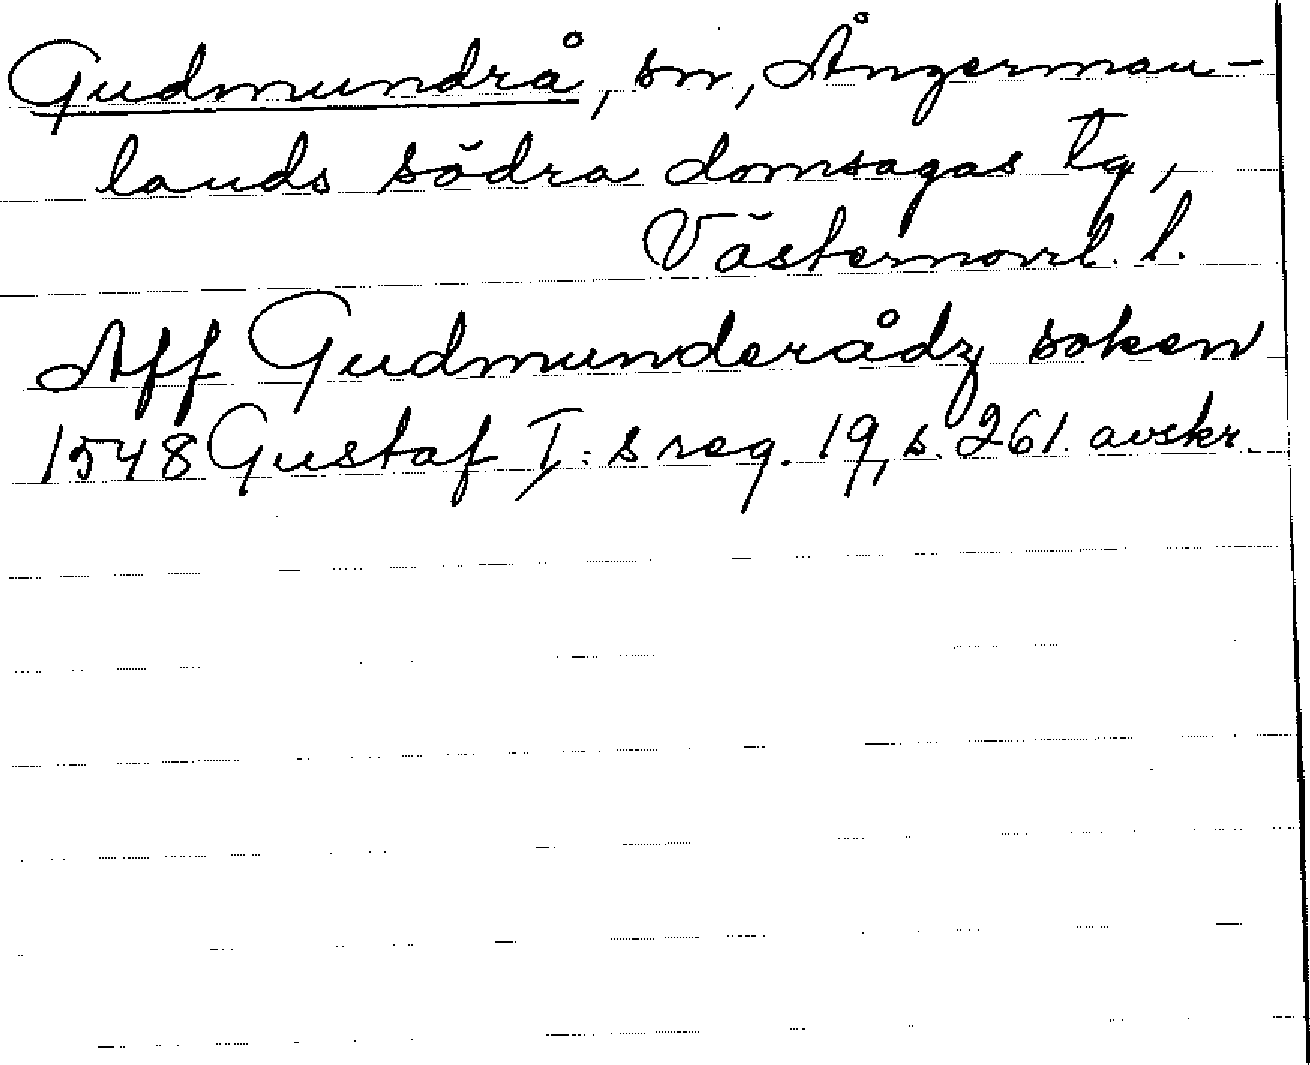 Gudmundrå, sn, Ångerman-
lands södra domsagas tg,
Västernorrl. l.
Aff Gudmunderådz soken
1548 Gustaf I:s reg. 19, s. 261. avskr.